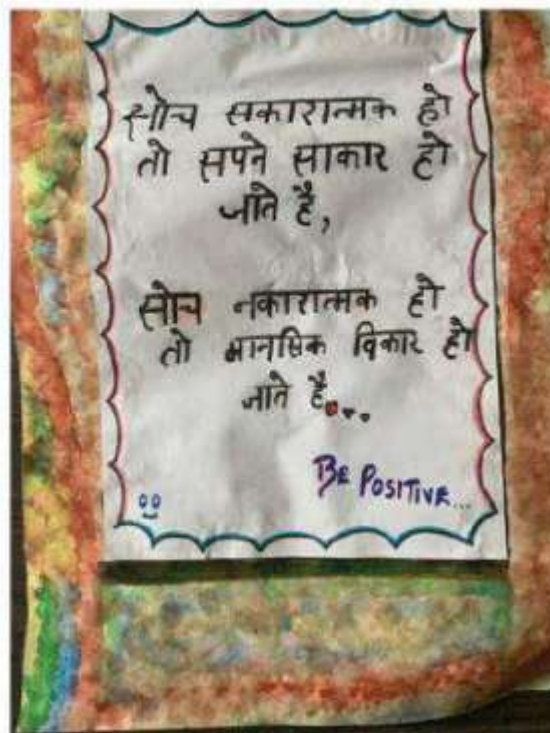 सोच सकारात्मक हो
तो सपने साकार हो
जाते है,
सोच नकारात्मक हो
तो मानसिक विकार हो
जाते है...
BE POSITIVE...